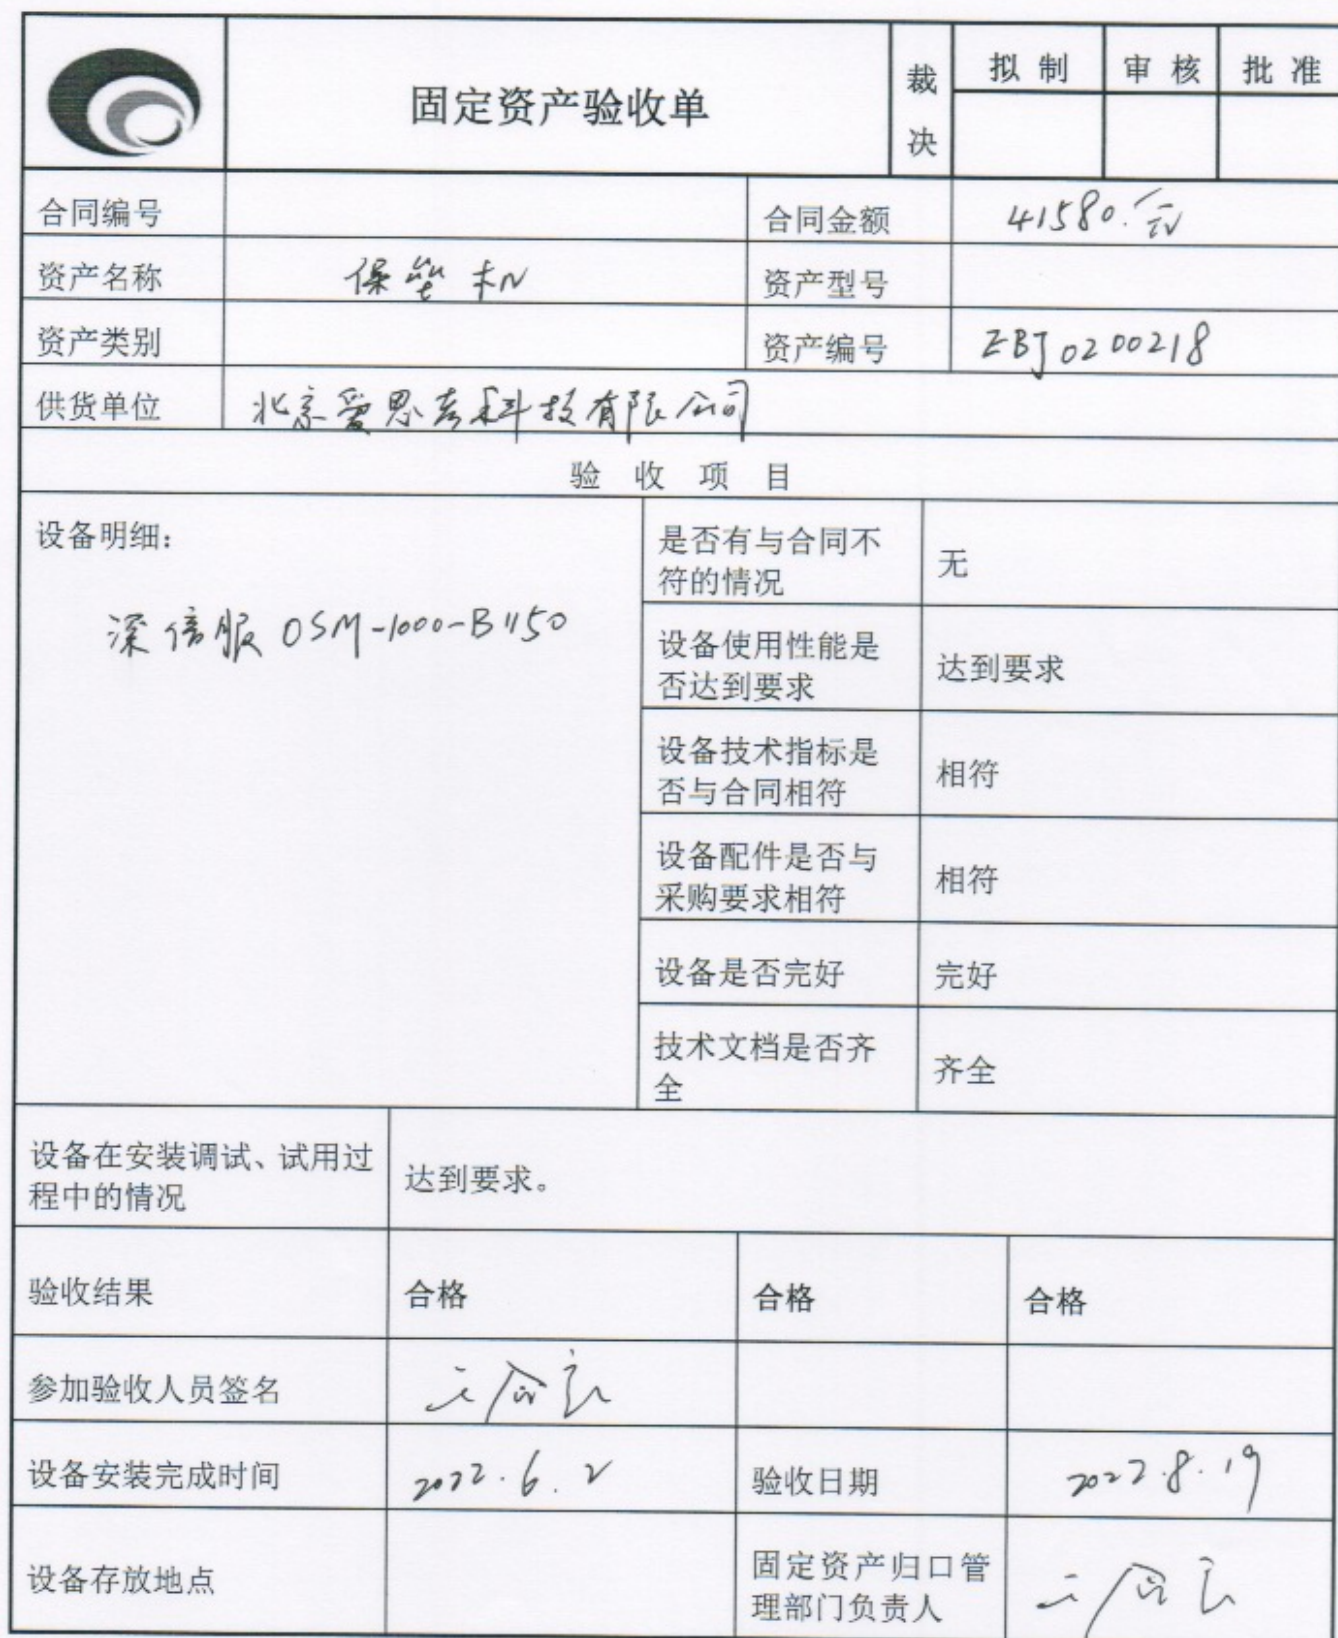 固定资产验收单
裁决
拟 制 审 核 批 准
合同编号 合同金额 41580.元
资产名称 保垒机 资产型号
资产类别 资产编号 ZBJ0200218
供货单位 北京爱思考科技有限公司
验 收 项 目
设备明细:
深信服 OSM-1000-B1150
是否有与合同不
符的情况
无
设备使用性能是
否达到要求
达到要求
设备技术指标是
否与合同相符
相符
设备配件是否与
采购要求相符
相符
设备是否完好 完好
技术文档是否齐
全
齐全
设备在安装调试、试用过
程中的情况
达到要求。
验收结果 合格 合格 合格
参加验收人员签名
设备安装完成时间 2022.6.2 验收日期 2022.8.19
设备存放地点
固定资产归口管
理部门负责人